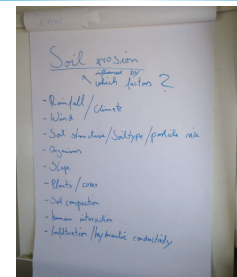 Soil erosion
influenced by
which factors ?
- Rainfall / Climate
- Wind
- Soil structure / Soiltype / particle size
- Organisms
- Slope
- Plants / cover
- Soil compaction
- human interaction
- Infiltration / hydraulic conductivity